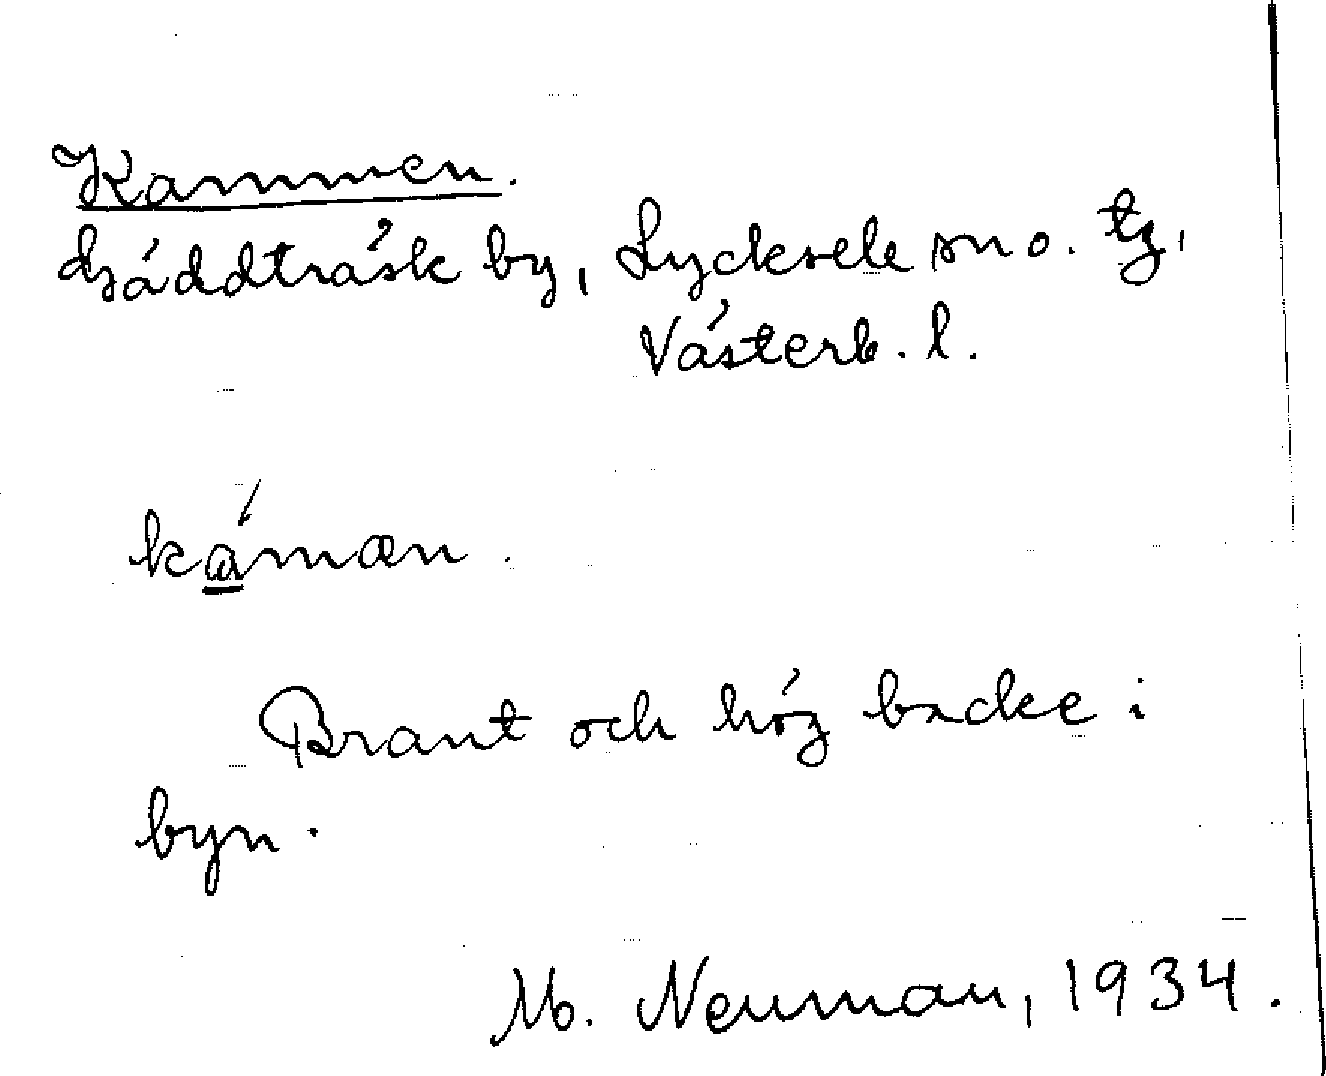 Kammen.
Gäddträsk by, Lycksele sn o. tg,
Västerb. l.
kámæn.
Brant och hög backe i
byn.
M. Neuman, 1934.